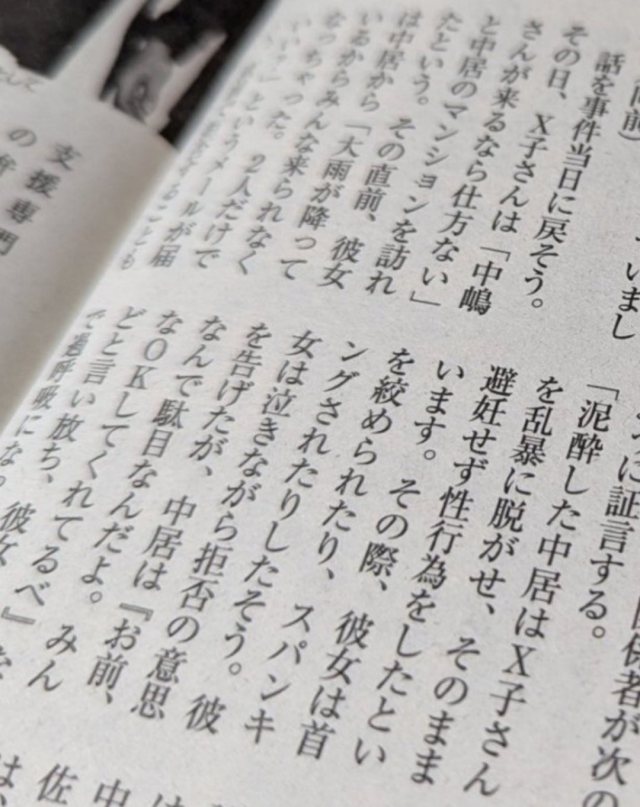 前)
いまし
話を事件当日に戻そう。
その日、X子さんは「中嶋
さんが来るなら仕方ない」
と中居のマンションを訪れ
たという。その直前、彼女
は中居から「大雨が降って
いるからみんな来られなく
なっちゃった。2人だけで
いい?」というメールが届
に証言する。
係者が次の
「泥酔した中居はX子さん
を乱暴に脱がせ、そのまま
避妊せず性行為をしたとい
います。その際、彼女は首
を絞められたり、スパンキ
ングされたりしたそう。彼
女は泣きながら拒否の意思
を告げたが、中居は『お前、
なんで駄目なんだよ。みん
なOKしてくれてるべ』な
どと言い放ち、彼女
過呼吸にな
支援専門
の弁
中
佐
は、